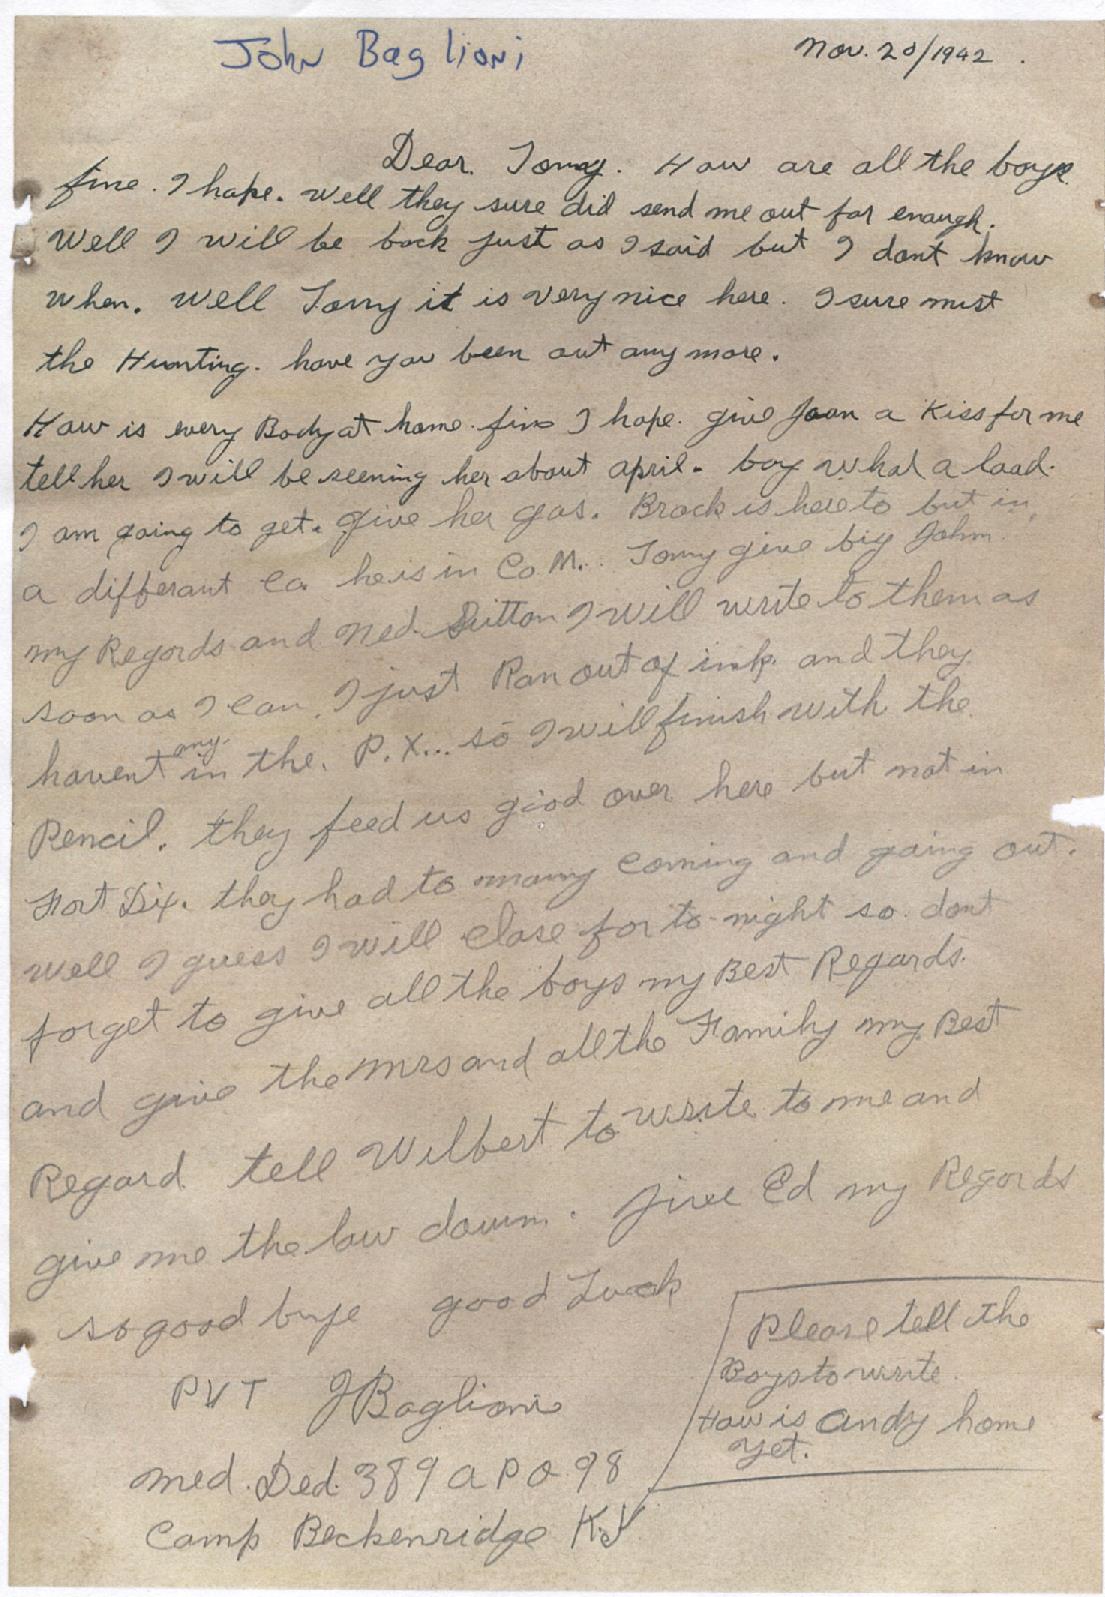 John Baglioni
Nov. 20/1942.
Dear Tony. How are all the boys
fine. I hope. Well they sure did send me out far enough.
Well I will be back just as I said but I dont know
when. Well Tony it is very nice here. I sure mist
the Hunting. have you been out any more.
How is every Body at home. fine I hope. give Joan a Kiss for me
tell her I will be seening her about april. boy what a load
I am going to get. give her gas. Brock is here to but in
a differant Co. he is in Co. M.. Tony give big John
my Regords and Ned. Sutton I will write to them as
soon as I can. I just Ran out of ink. and they
havent any in the. P.X... so I will finish with the
Pencil. they feed us good over here but not in
Fort Dix. they had to many coming and going out.
Well I guess I will close for to-night so dont
forget to give all the boys my Best Regards.
and give the Mrs and all the Family my Best
Regard tell Wilbert to write to me and
give me the low down. give Ed my Regords
so good buye good Luck
PVT J Baglioni
Med. Ded. 389 A P O 98
Camp Beckenridge K.Y
Please tell the
Boys to write.
How is andy home
yet.